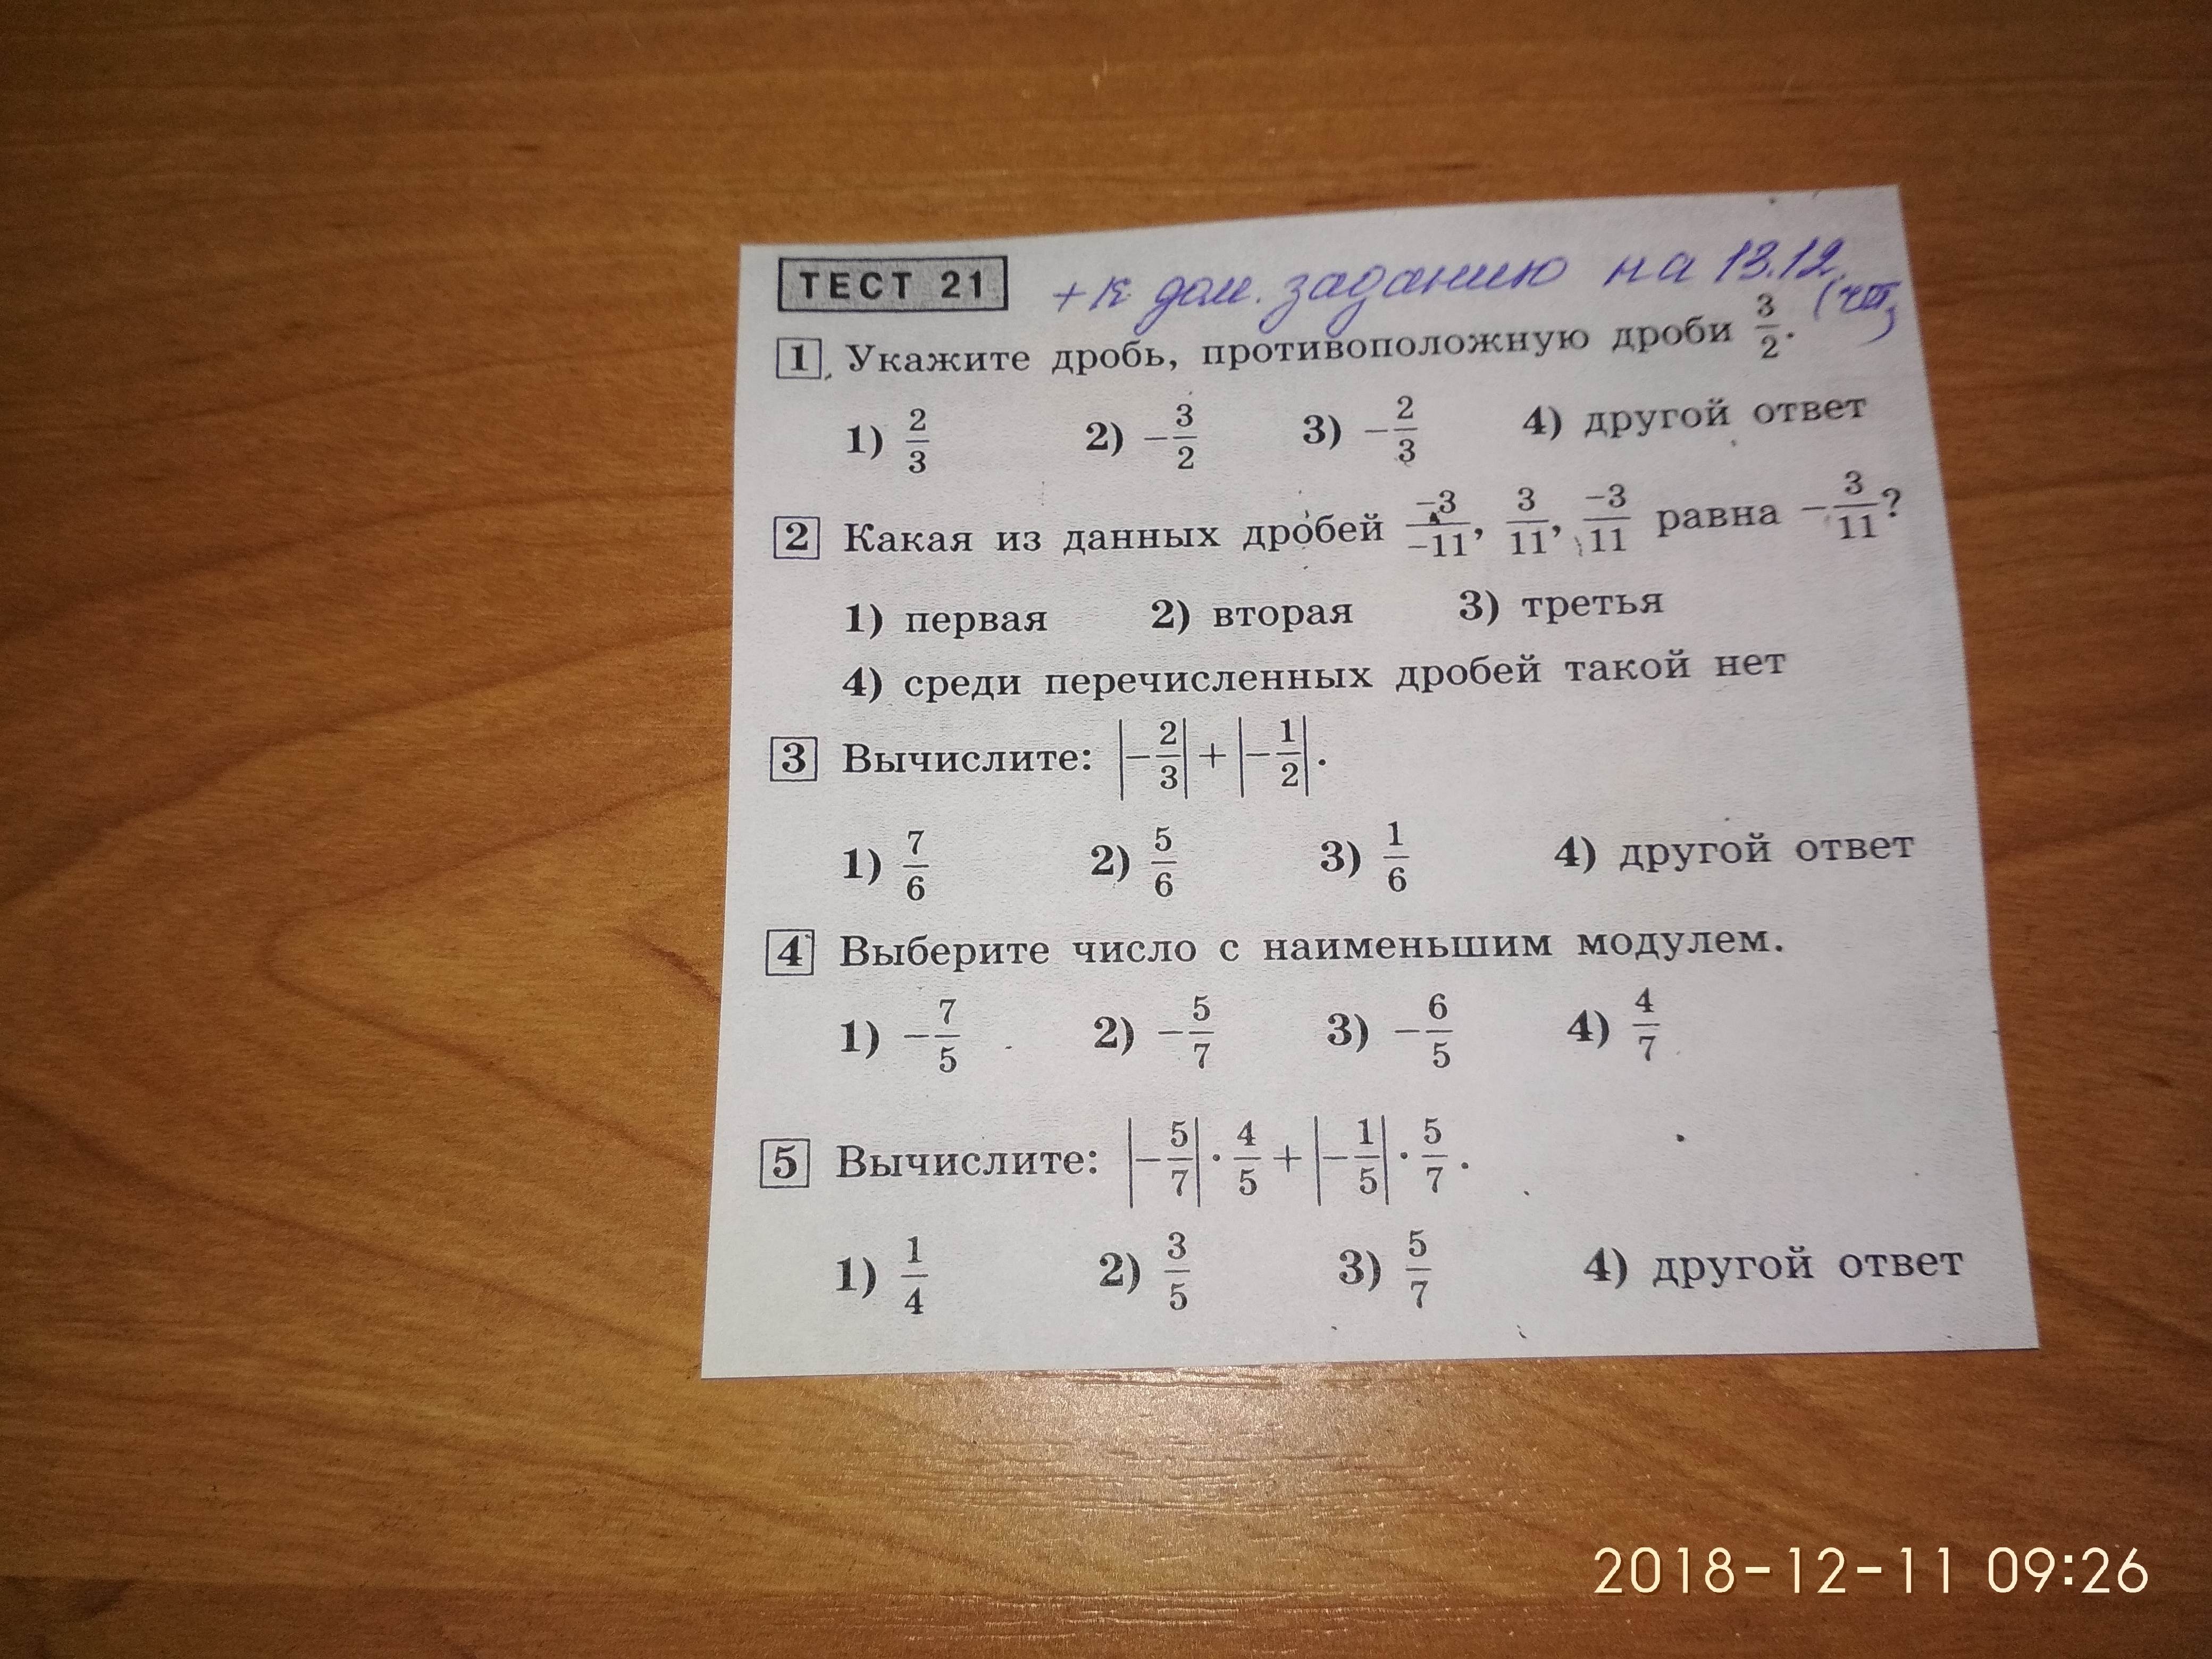 ТЕСТ 21 + к дом. заданию на 13.12. (чт)
1. Укажите дробь, противоположную дроби 3/2.
1) 2/3 2) −3/2 3) −2/3 4) другой ответ
2 Какая из данных дробей −3/−11, 3/11, −3/11 равна −3/11?
1) первая 2) вторая 3) третья
4) среди перечисленных дробей такой нет
3 Вычислите: |−2/3| + |−1/2|.
1) 7/6 2) 5/6 3) 1/6 4) другой ответ
4 Выберите число с наименьшим модулем.
1) −7/5 2) −5/7 3) −6/5 4) 4/7
5 Вычислите: |−5/7| · 4/5 + |−1/5| · 5/7.
1) 1/4 2) 3/5 3) 5/7 4) другой ответ
2018-12-11 09:26